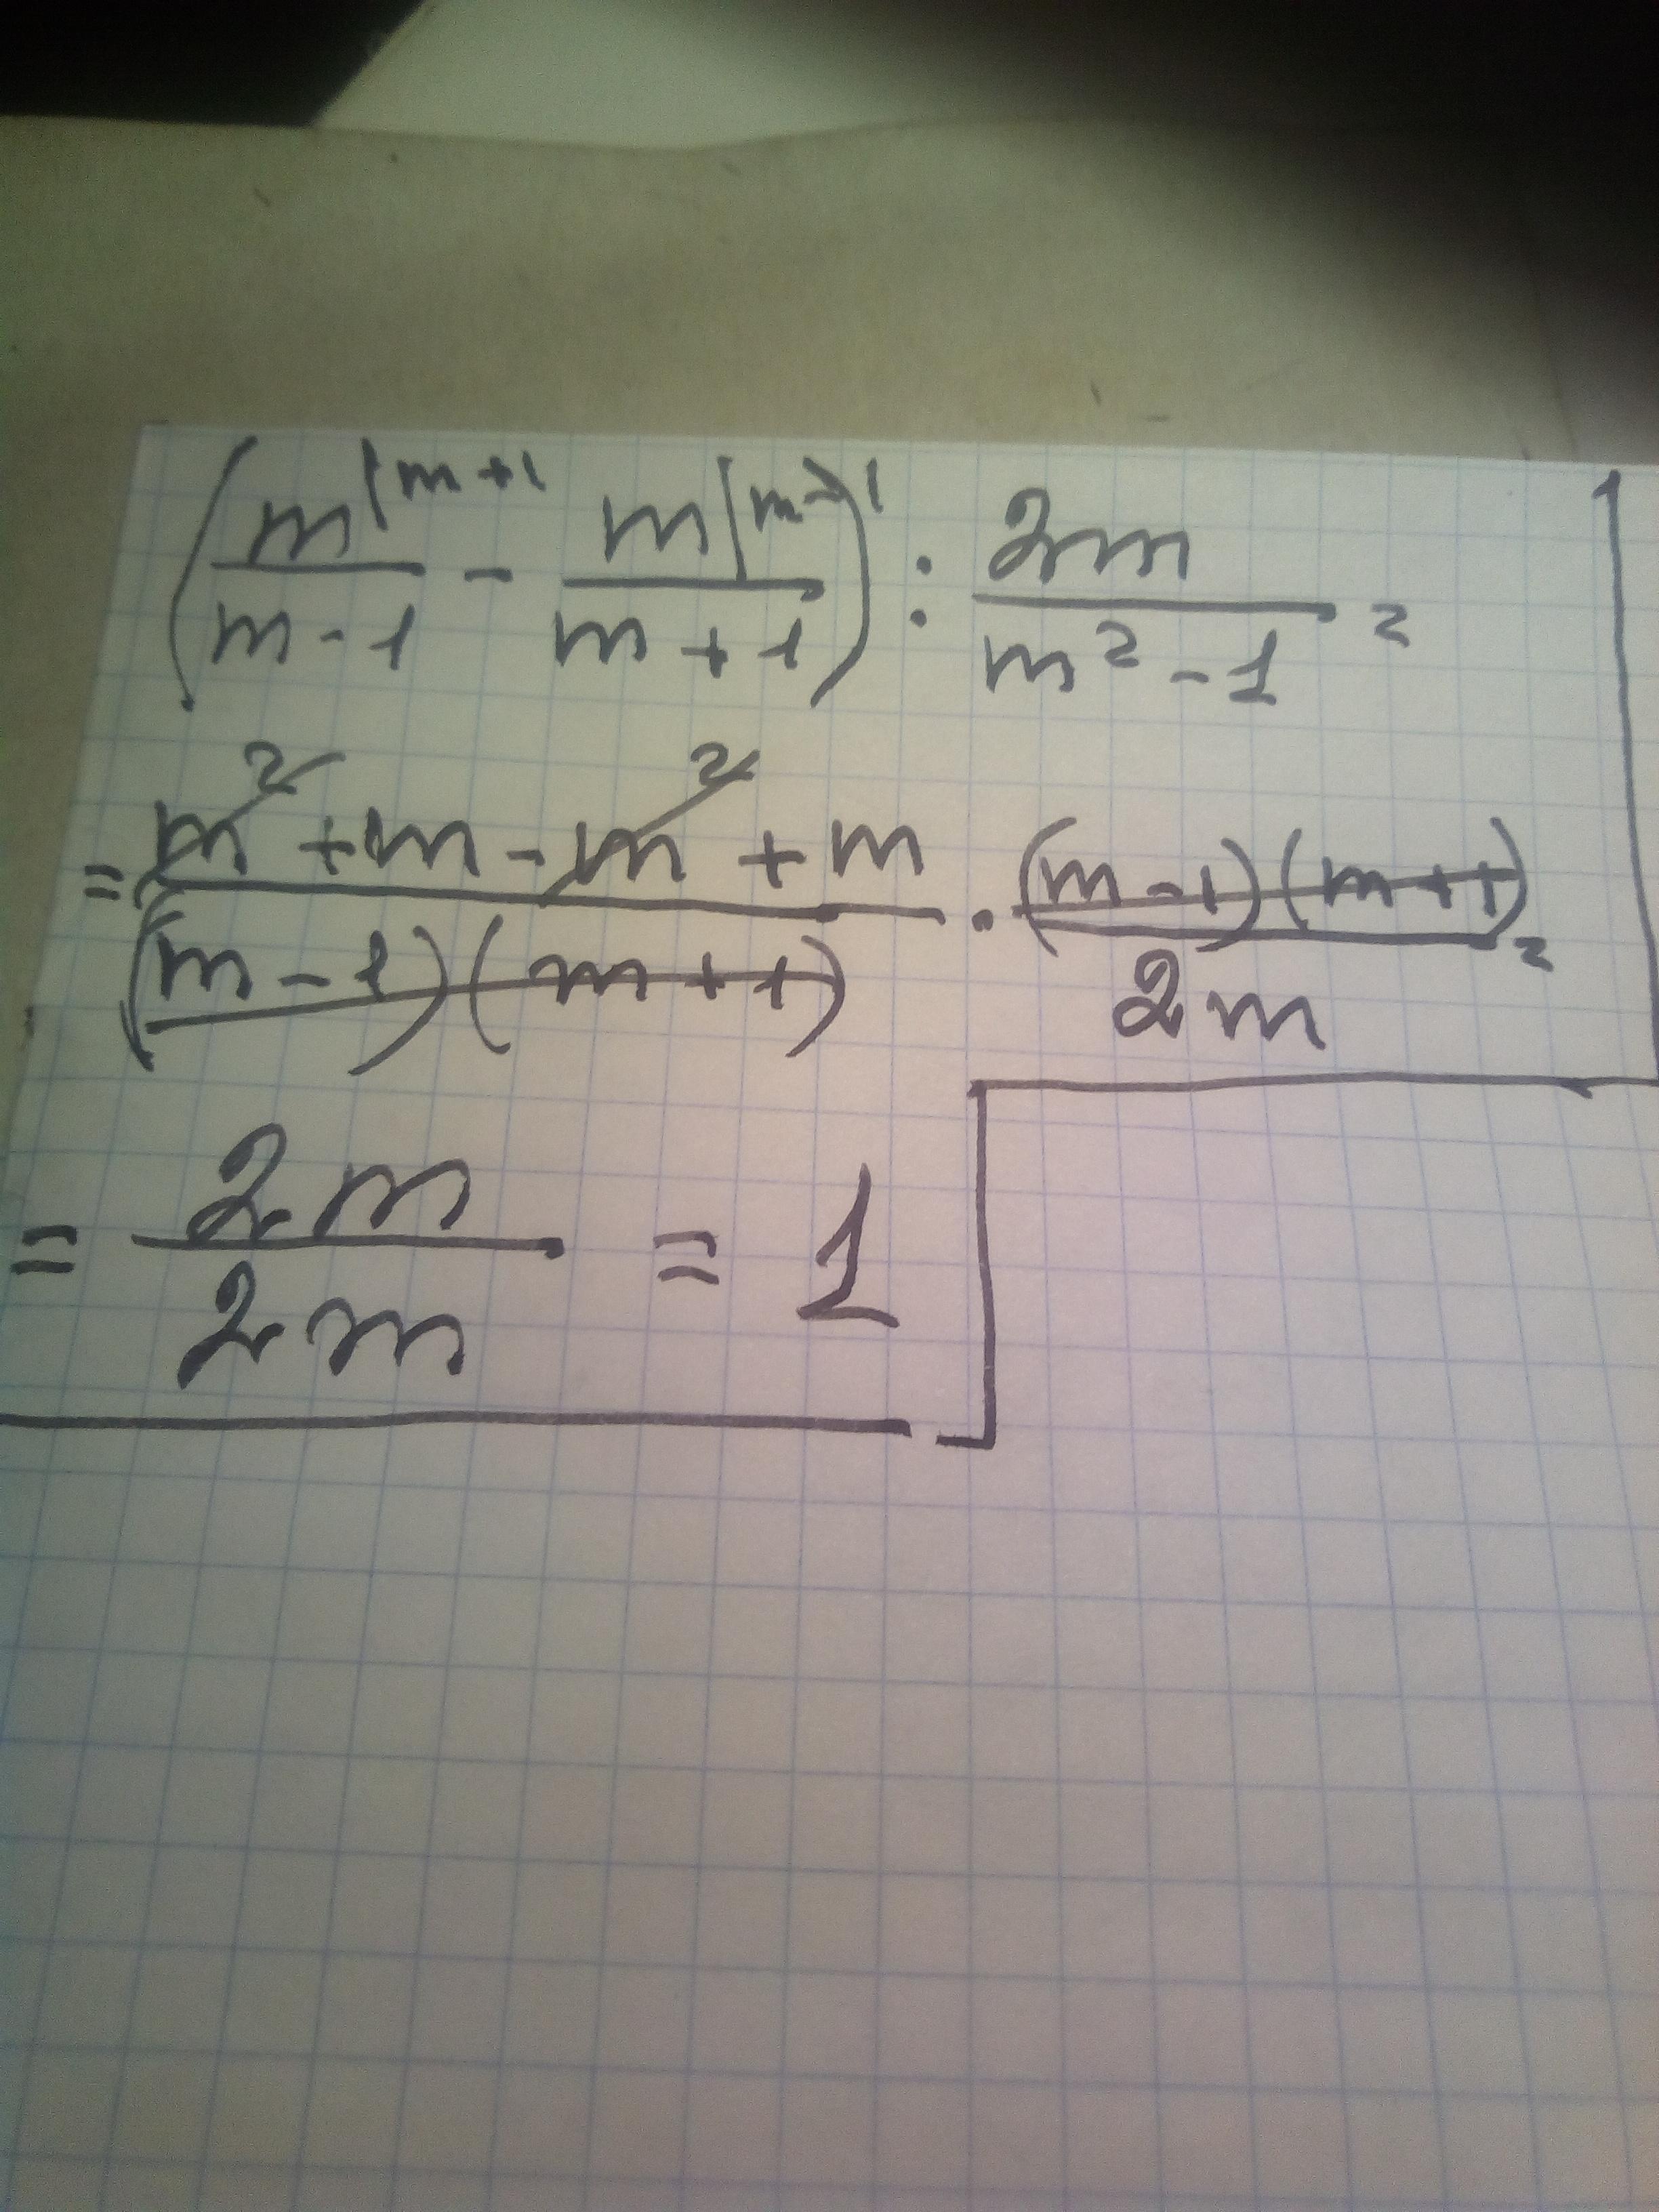 (m/(m-1) |m+1 - m/(m+1) |m-1) : 2m/(m²-1) =
= (m²+m-m²+m)/((m-1)(m+1)) · ((m-1)(m+1))/(2m) =
= 2m/2m = 1